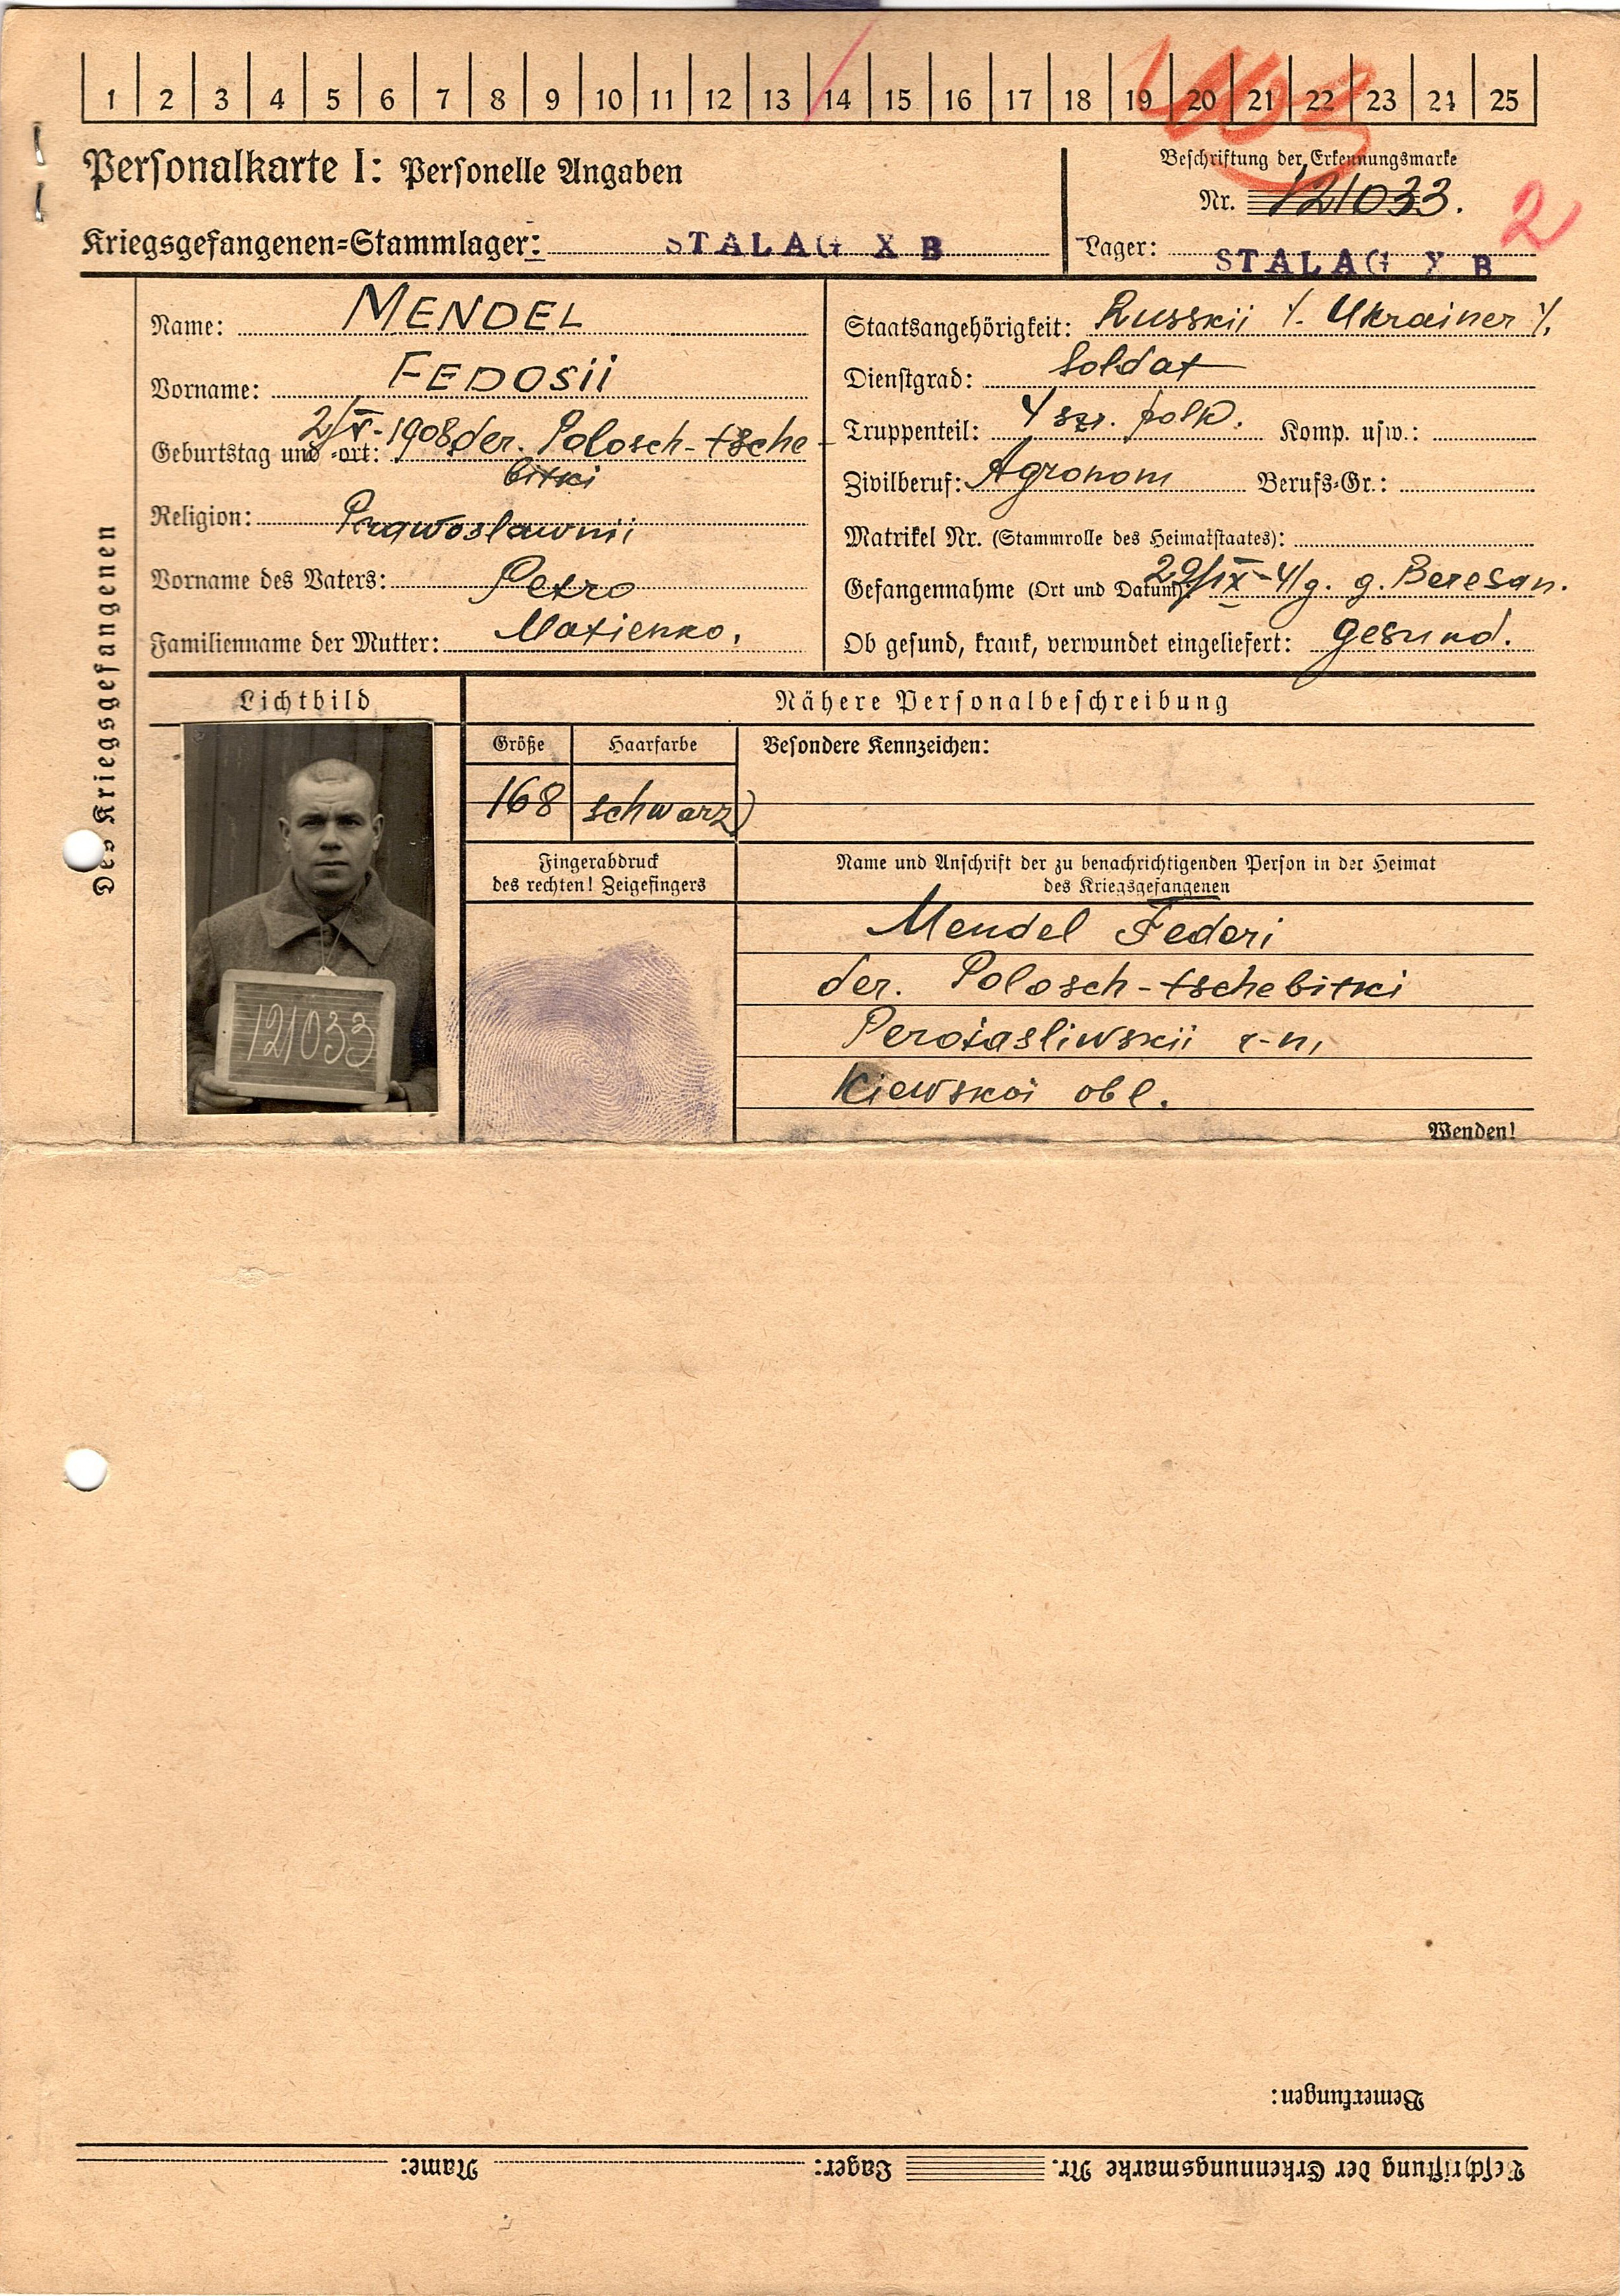 1 2 3 4 5 6 7 8 9 10 11 12 13 14 15 16 17 18 19 20 21 22 23 24 25
Personalkarte I: Personelle Angaben
Kriegsgefangenen=Stammlager: STALAG X B
Beschriftung der Erkennungsmarke
Nr. 121033.
2
Lager: STALAG X B
Des Kriegsgefangenen
Name: MENDEL
Vorname: FEDOSii
Geburtstag und -ort: 2/V-1908 der. Polosch-tsche-
bitki
Religion: Prawoslawnii
Vorname des Vaters: Petro
Familienname der Mutter:
Staatsangehörigkeit: Russkii /. Ukrainer /.
Dienstgrad: Soldat
Truppenteil: 4 polk. Komp. usw.:
Zivilberuf: Agronom Berufs-Gr.:
Matrikel Nr. (Stammrolle des Heimatstaates):
Gefangennahme (Ort und Datum): 29/IX-41g. g. Beresan.
Ob gesund, krank, verwundet eingeliefert: gesund.
Lichtbild
Nähere Personalbeschreibung
Größe Haarfarbe Besondere Kennzeichen:
168 schwarz
121033
Fingerabdruck
des rechten! Zeigefingers
Name und Anschrift der zu benachrichtigenden Person in der Heimat
des Kriegsgefangenen
Mendel Fedori
der. Polosch-tschebitki
r-n,
Kiewskoi obl.
Wenden!
Bemerkungen:
Beschriftung der Erkennungsmarke Nr. Lager: Name: